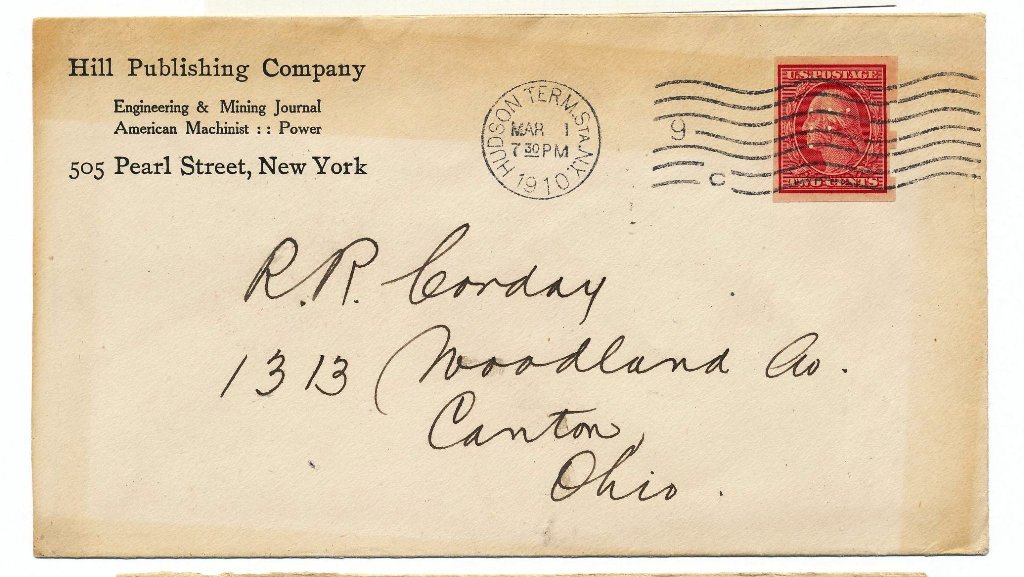 Hill Publishing Company
Engineering & Mining Journal
American Machinist : : Power
505 Pearl Street, New York
HUDSON TERM. STA. N.Y.
MAR 1
7 30 PM
1910
9
C
U.S. POSTAGE
TWO CENTS
R. R. Corday
1313 Woodland Av.
Canton,
Ohio.